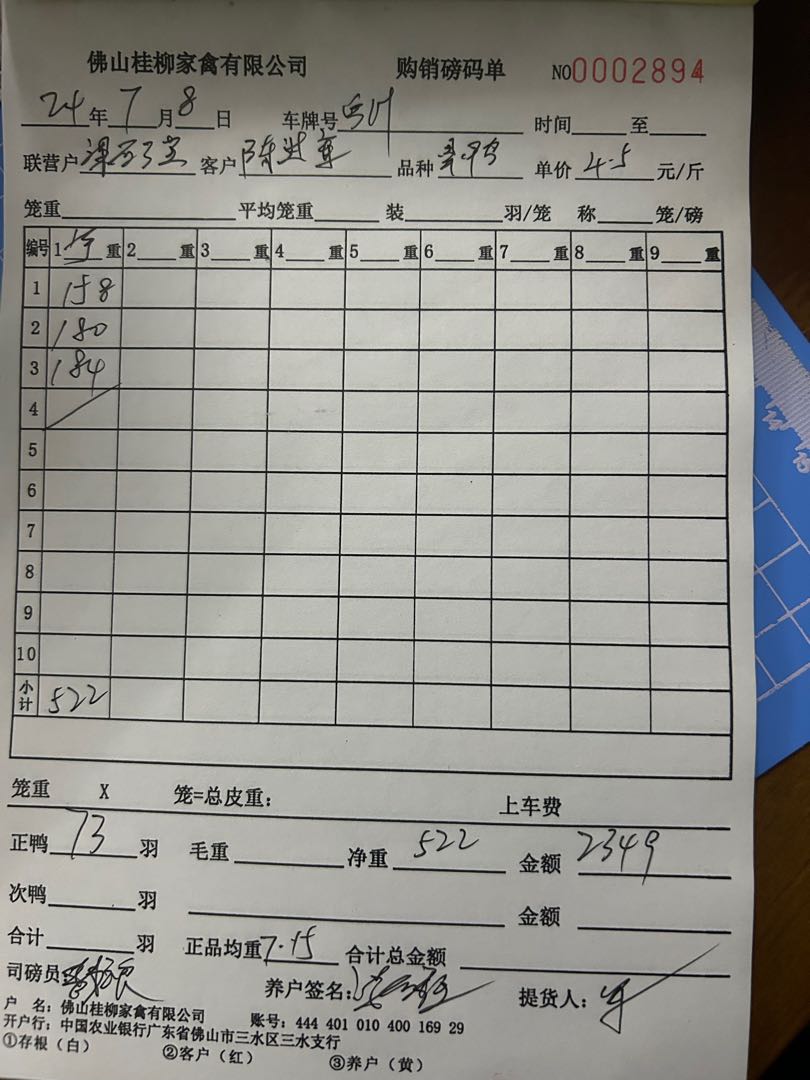 佛山桂柳家禽有限公司 购销磅码单 NO0002894
24年7月8日 车牌号 时间 至
联营户 客户陈 品种 单价4.5元/斤
笼重 平均笼重 装 羽/笼 称 笼/磅
编号 1 重 2 重 3 重 4 重 5 重 6 重 7 重 8 重 9 重
1 158
2 180
3 184
4
5
6
7
8
9
10
小计 522
笼重 X 笼=总皮重: 上车费
正鸭73羽 毛重 净重522 金额2349
次鸭 羽 金额
合计 羽 正品均重7.15 合计总金额
司磅员: 养户签名: 提货人:
户 名: 佛山桂柳家禽有限公司 账号: 444 401 010 400 169 29
开户行: 中国农业银行广东省佛山市三水区三水支行
①存根(白) ②客户(红) ③养户(黄)